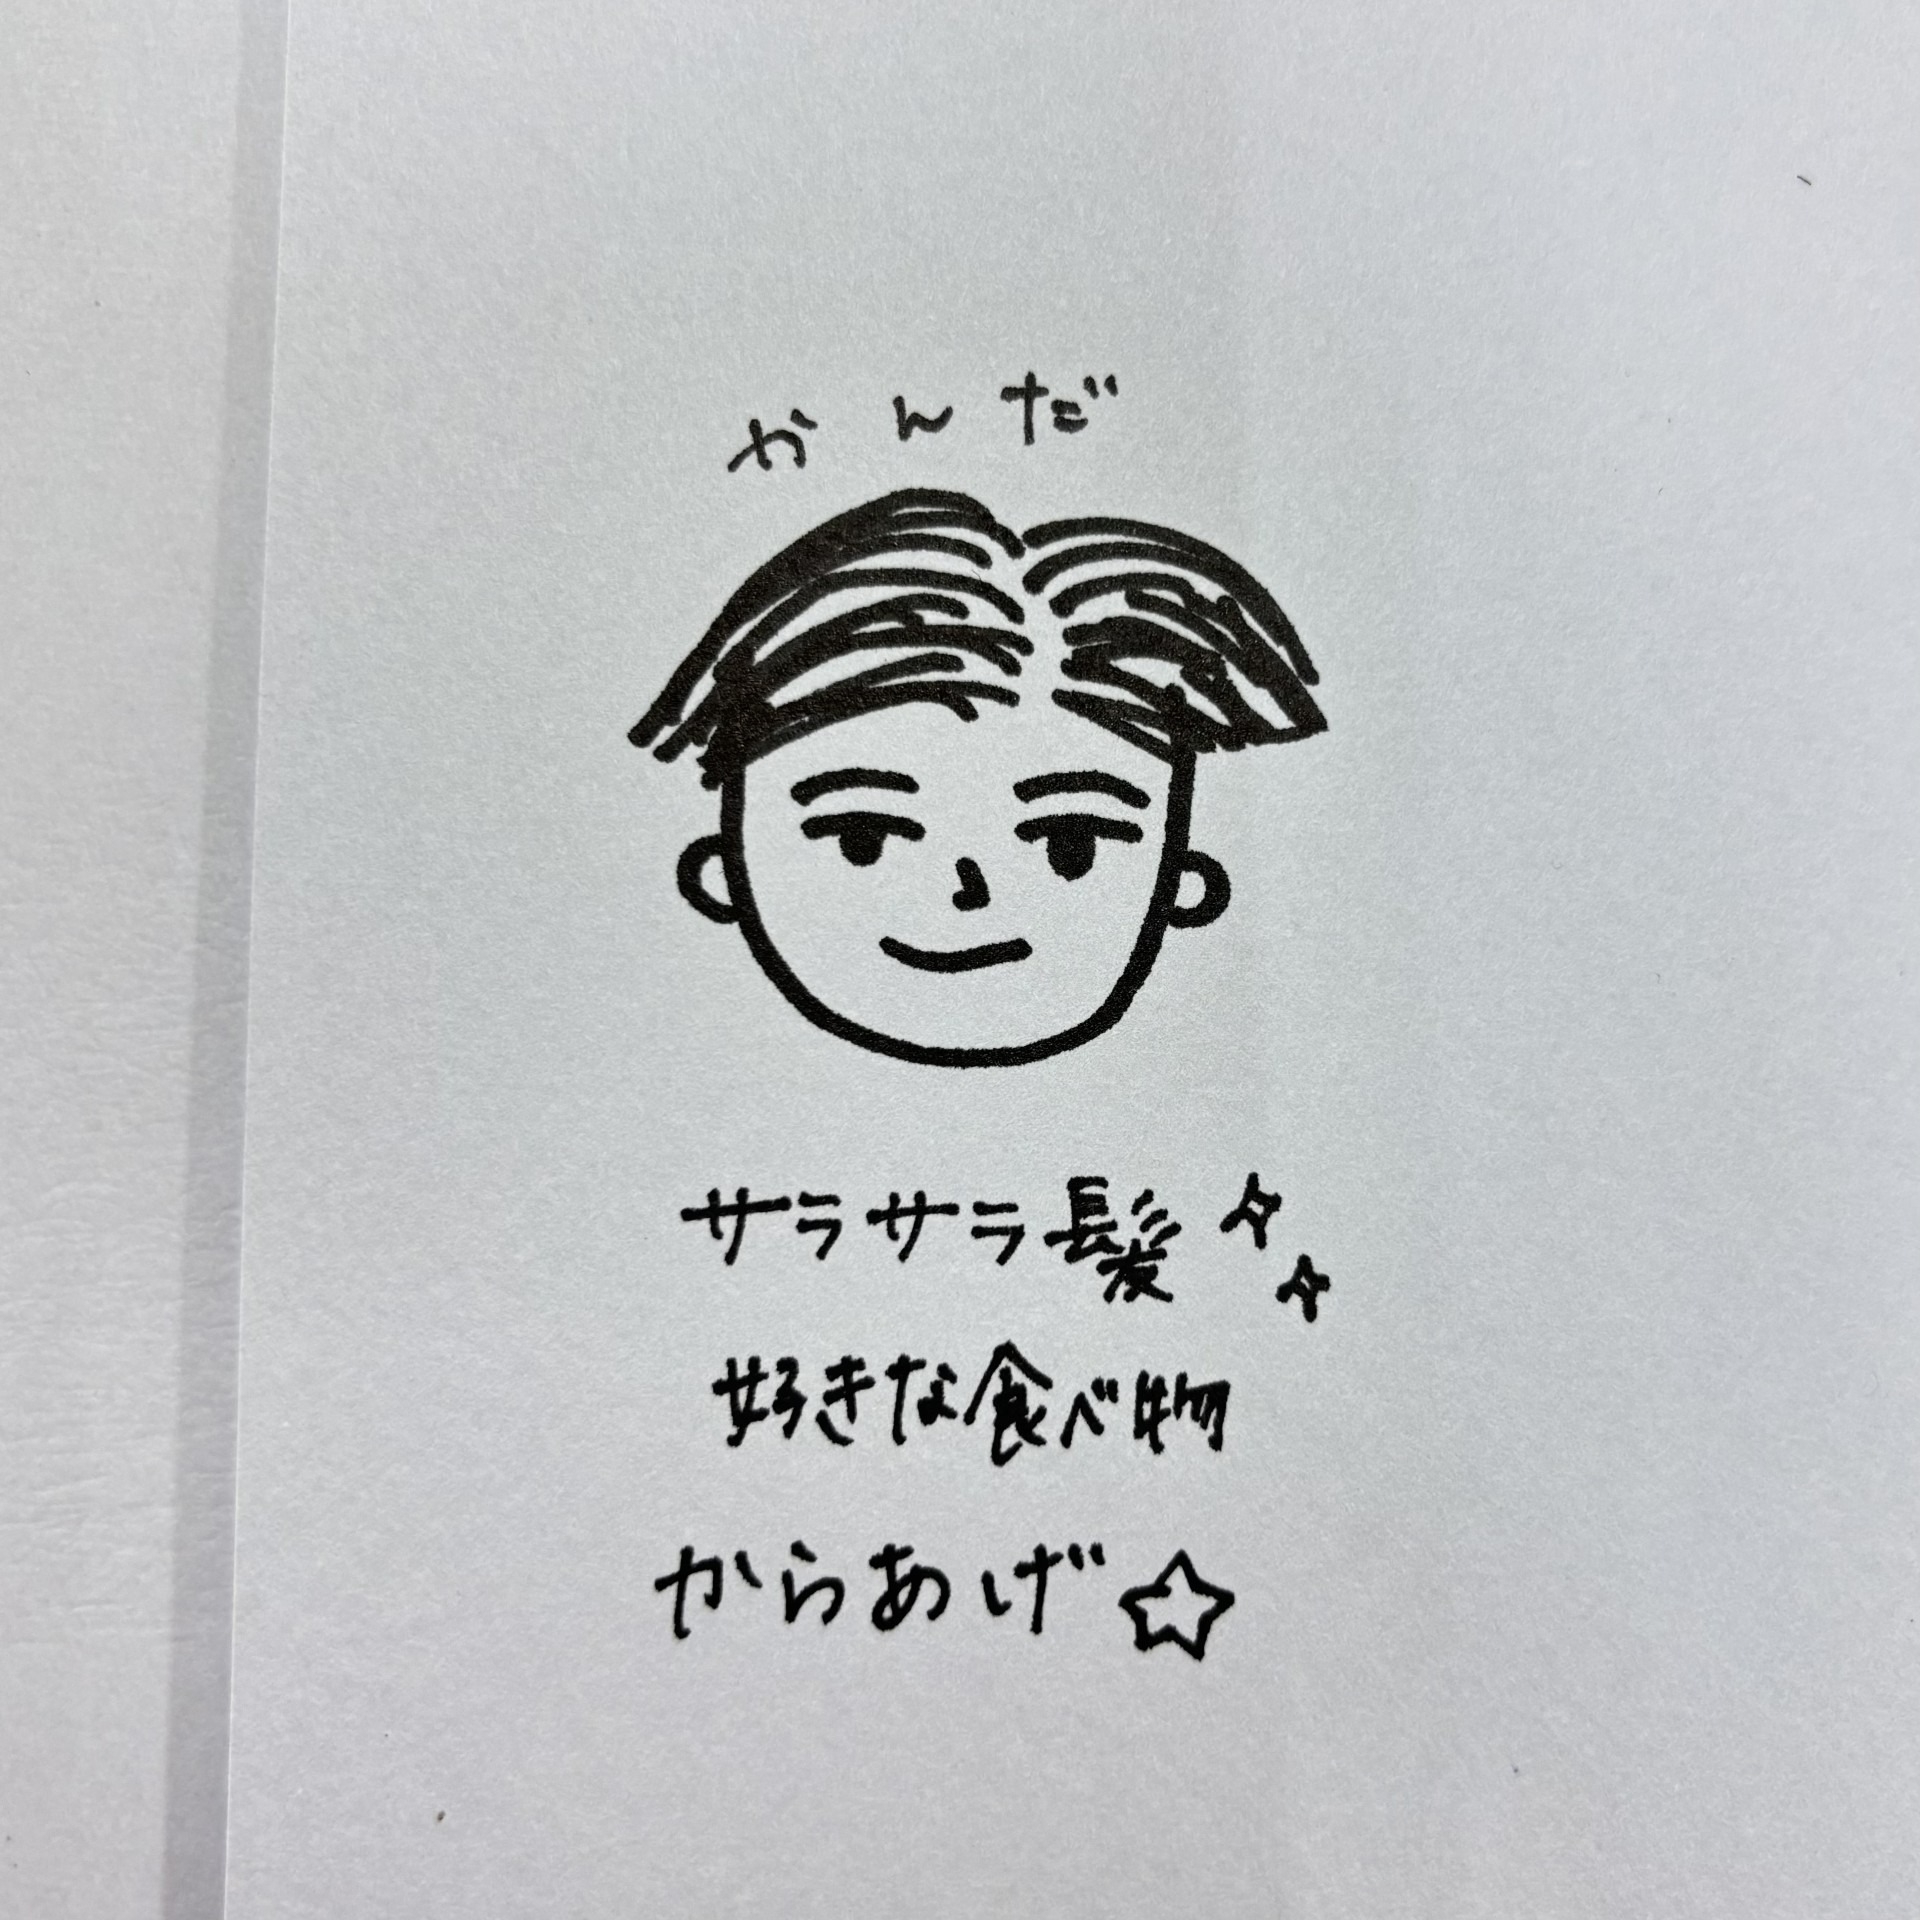 かんだ
サラサラ髪
好きな食べ物
からあげ☆